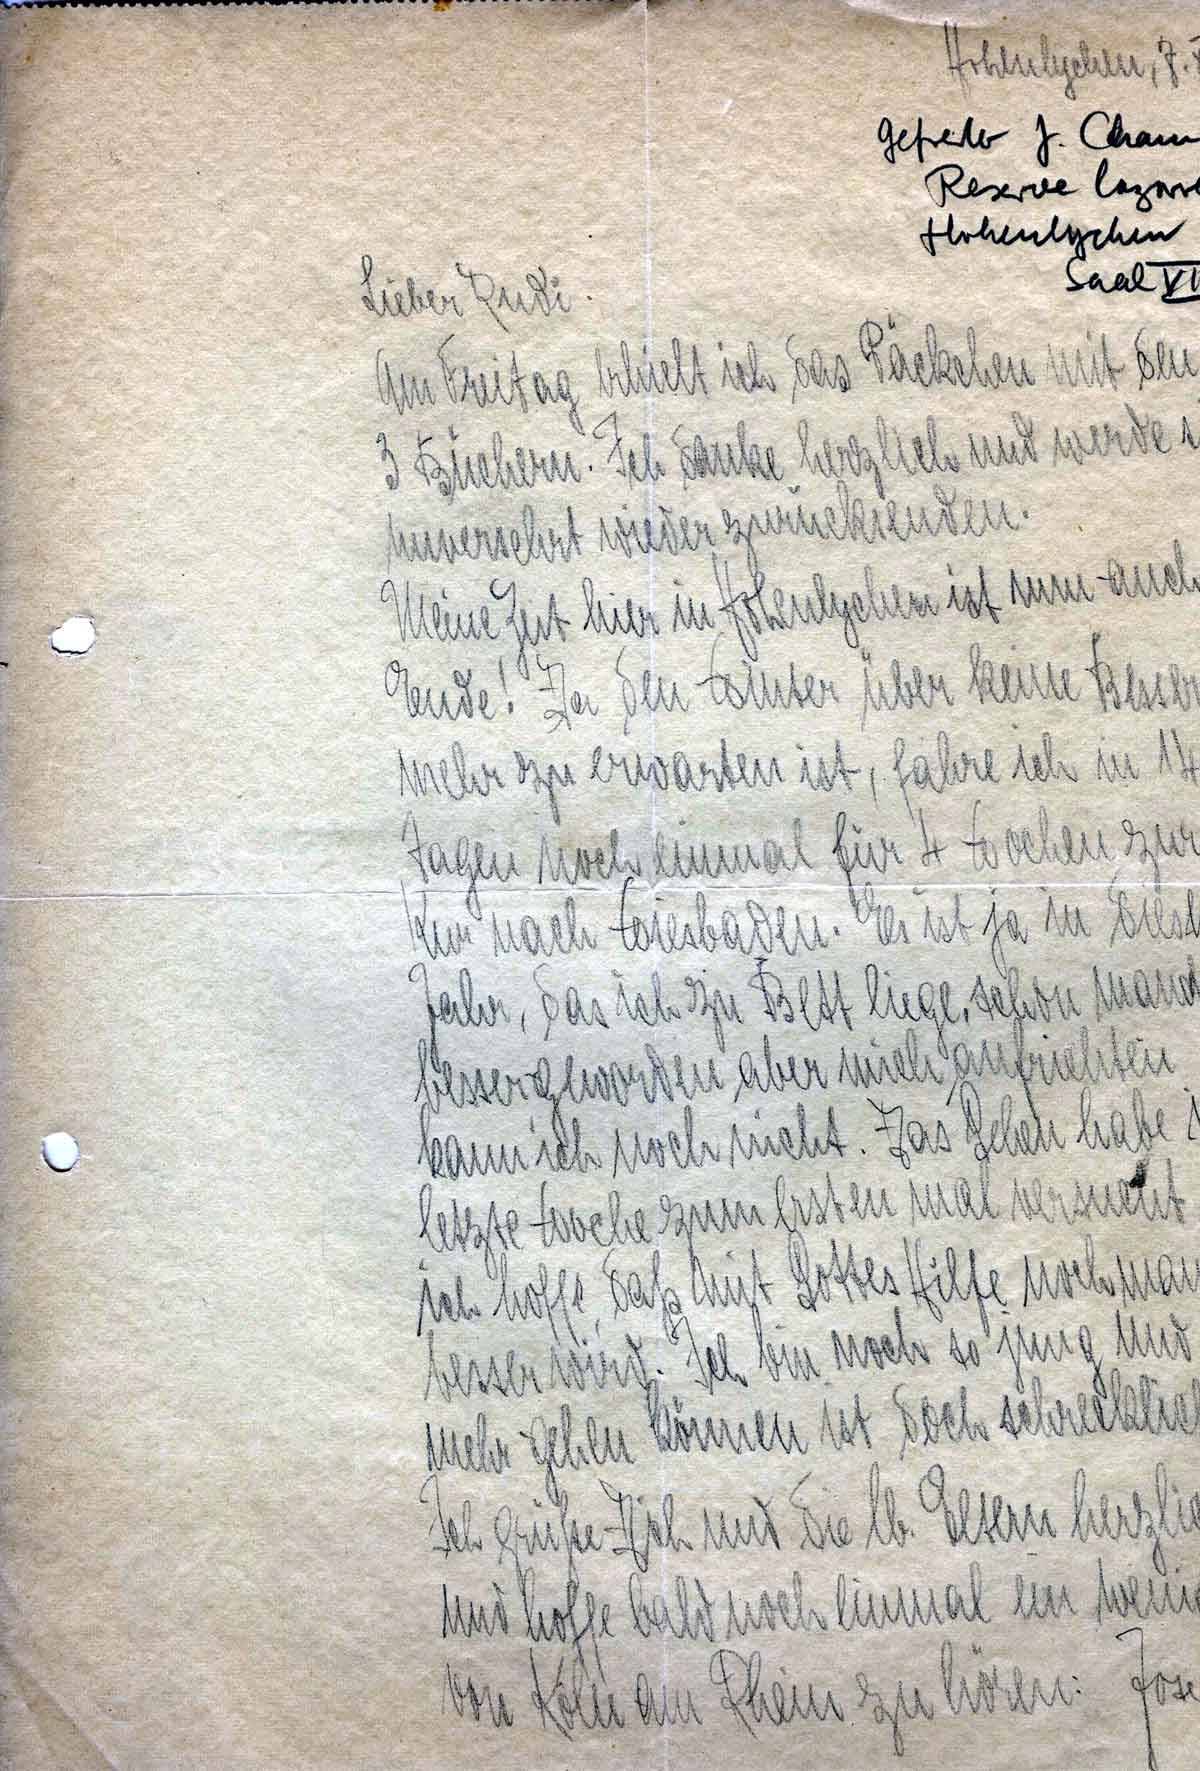 Hohenlychen, 7.
Gefreiter J. Cham
Reserve Lazare
Hohenlychen
Saal VI
Lieber Rudi.
Am Freitag erhielt ich das Päckchen mit den
3 Büchern. Ich danke herzlich und werde s
unversehrt wieder zurücksenden.
Meine Zeit hier in Hohenlychen ist nun auch
Ende! Da den Winter über keine Besser
mehr zu erwarten ist, fahre ich in 14
Tagen noch einmal für 4 Wochen zur
Kur nach Wiesbaden. Es ist ja in diese
Jahr, das ich zu Bett liege, schon manch
besser geworden aber mich aufrichten
kann ich noch nicht. Das Gehen habe i
letzte Woche zum ersten mal versucht
ich hoffe, daß mit Gottes Hilfe noch man
besser wird. Ich bin noch so jung und
mehr gehen können ist doch schrecklich
Ich grüße Dich und die lb. Eltern herzlic
und hoffe bald noch einmal ein weni
von Köln am Rhein zu hören. Jose